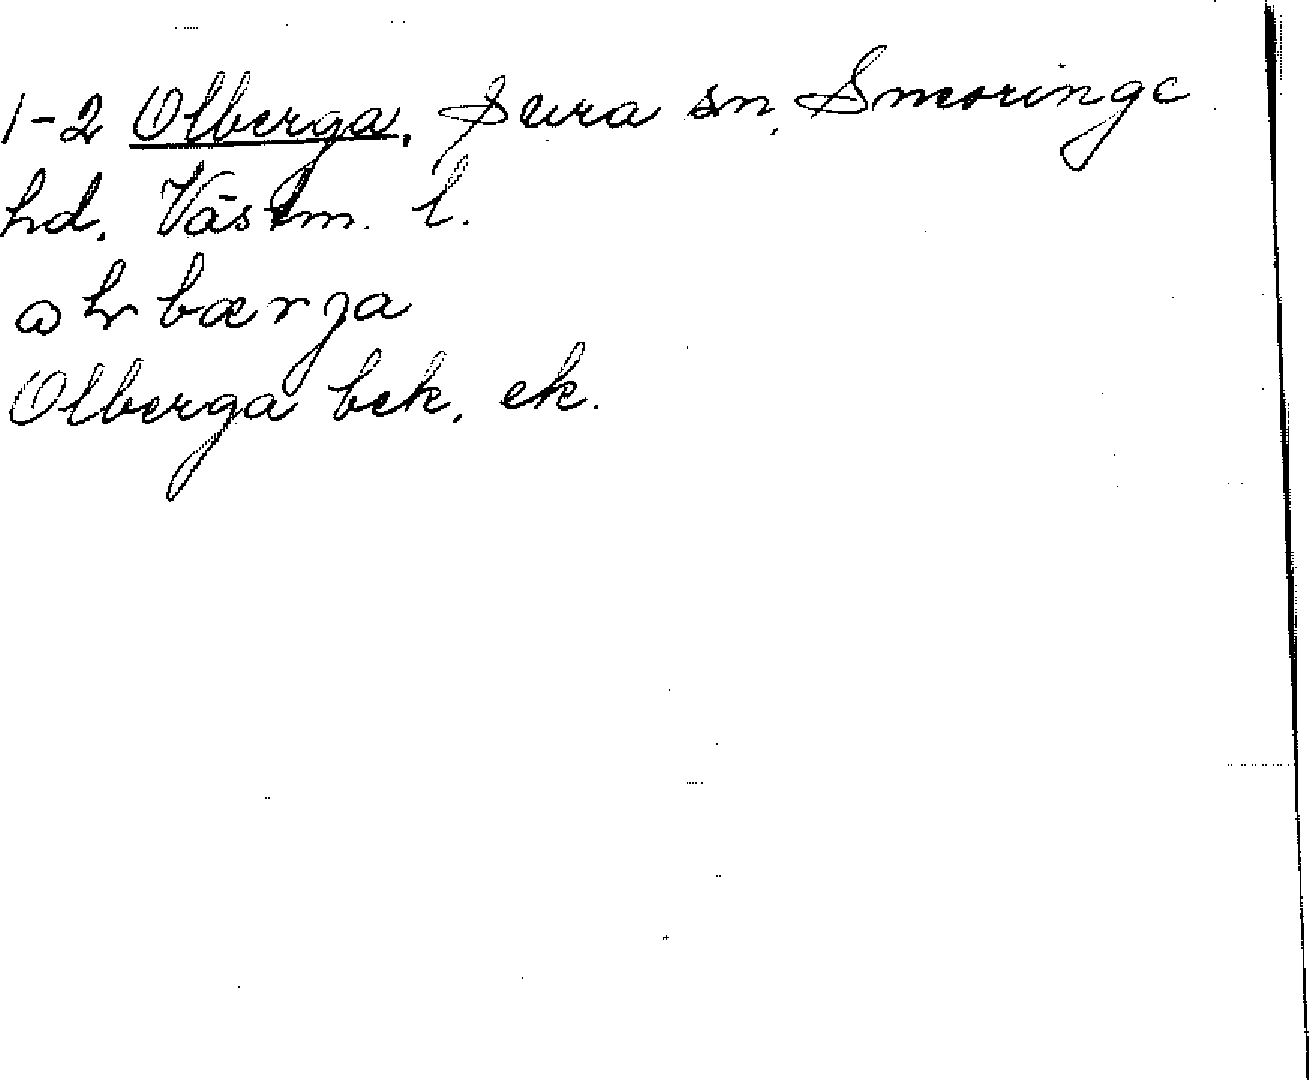 1-2 Olberga, Sura sn, Snevringe
hd, Västm. l.
Olberga bek, ek.